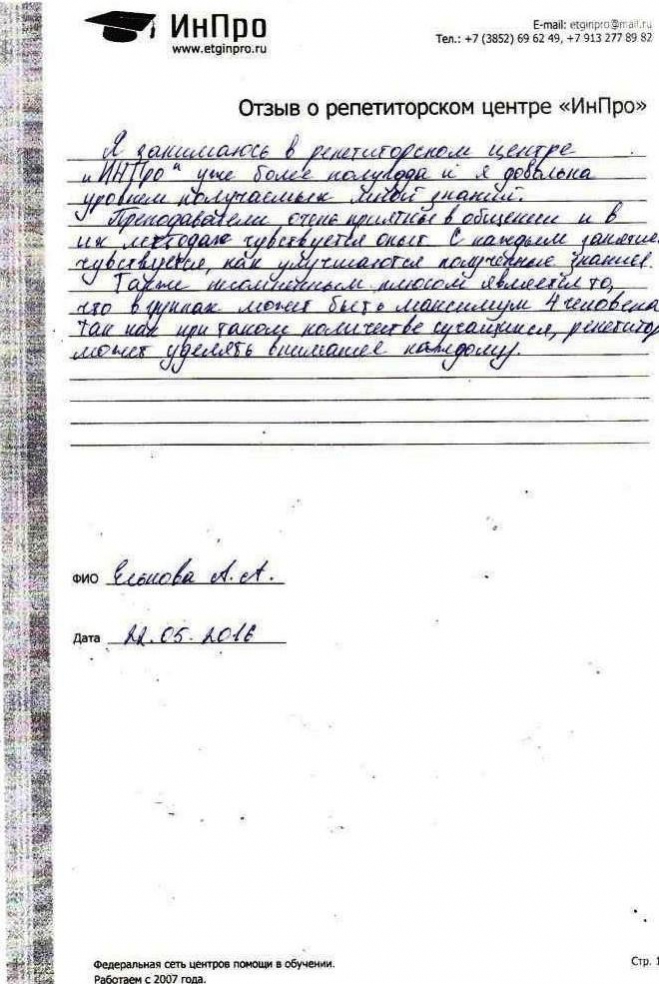 ИнПро
www.etginpro.ru
E-mail: etginpro@mail.ru
Тел.: +7 (3852) 69 62 49, +7 913 277 89 82
Отзыв о репетиторском центре «ИнПро»
Я занимаюсь в репетиторском центре
"ИНПро" уже более полугода и я довольна
уровнем получаемых мной знаний.
Преподаватели очень приятные в общении и в
их методах чувствуется опыт. С каждым занятие
чувствуется, как улучшаются полученные знания.
Также несомненным плюсом является то,
что в групах может быть максимум 4 человека
так как при таком количестве учащихся, репетитор
может уделять внимание каждому.
ФИО А.А.
Дата 22.05.2016
Федеральная сеть центров помощи в обучении.
Работаем с 2007 года.
Стр. 1